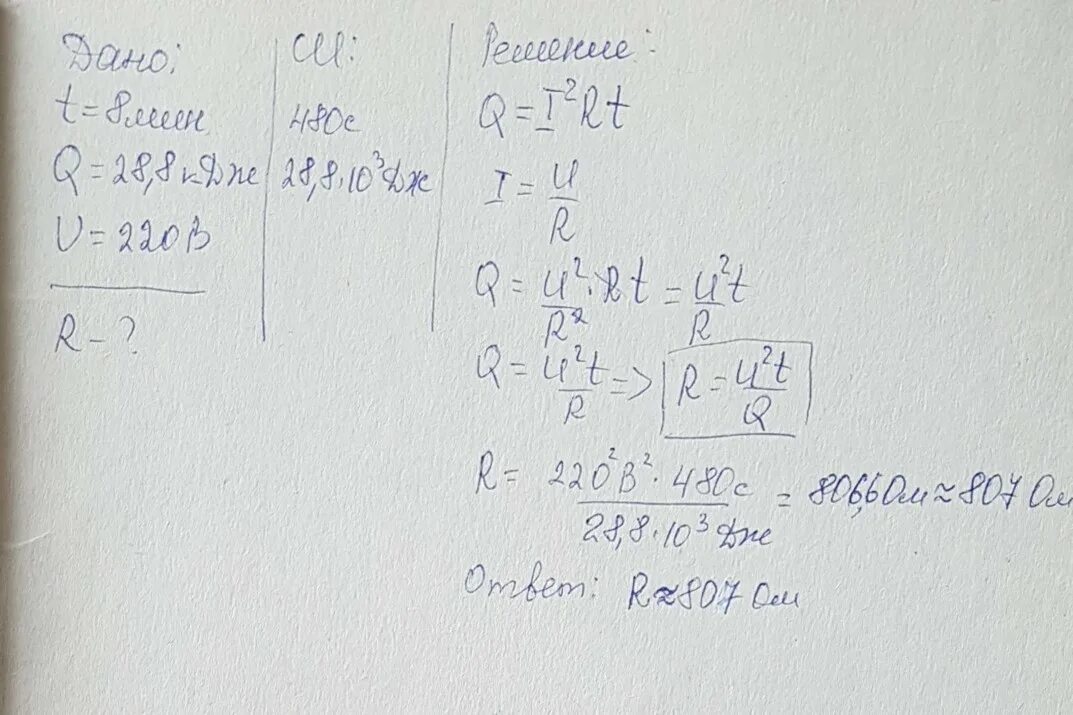 Дано:
t = 8 мин
Q = 28,8 кДж
U = 220 В
R - ?
СИ:
480 с
28,8·10³ Дж
Решение:
Q = I²Rt
I = U/R
Q = U²/R² · Rt = U²t/R
Q = U²t/R => R = U²t/Q
R = 220²В²·480с / 28,8·10³Дж = 806,6 Ом ≈ 807 Ом
Ответ: R ≈ 807 Ом